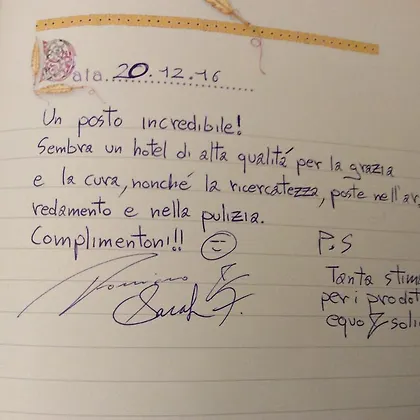 Data 20.12.16
Un posto incredibile!
Sembra un hotel di alta qualitá per la grazia
e la cura, nonché la ricercatezza, poste nell'ar
redamento e nella pulizia.
Complimentoni!! ☺
Sarah F.
P.S
Tanta stim
per i prodot
equo e soli